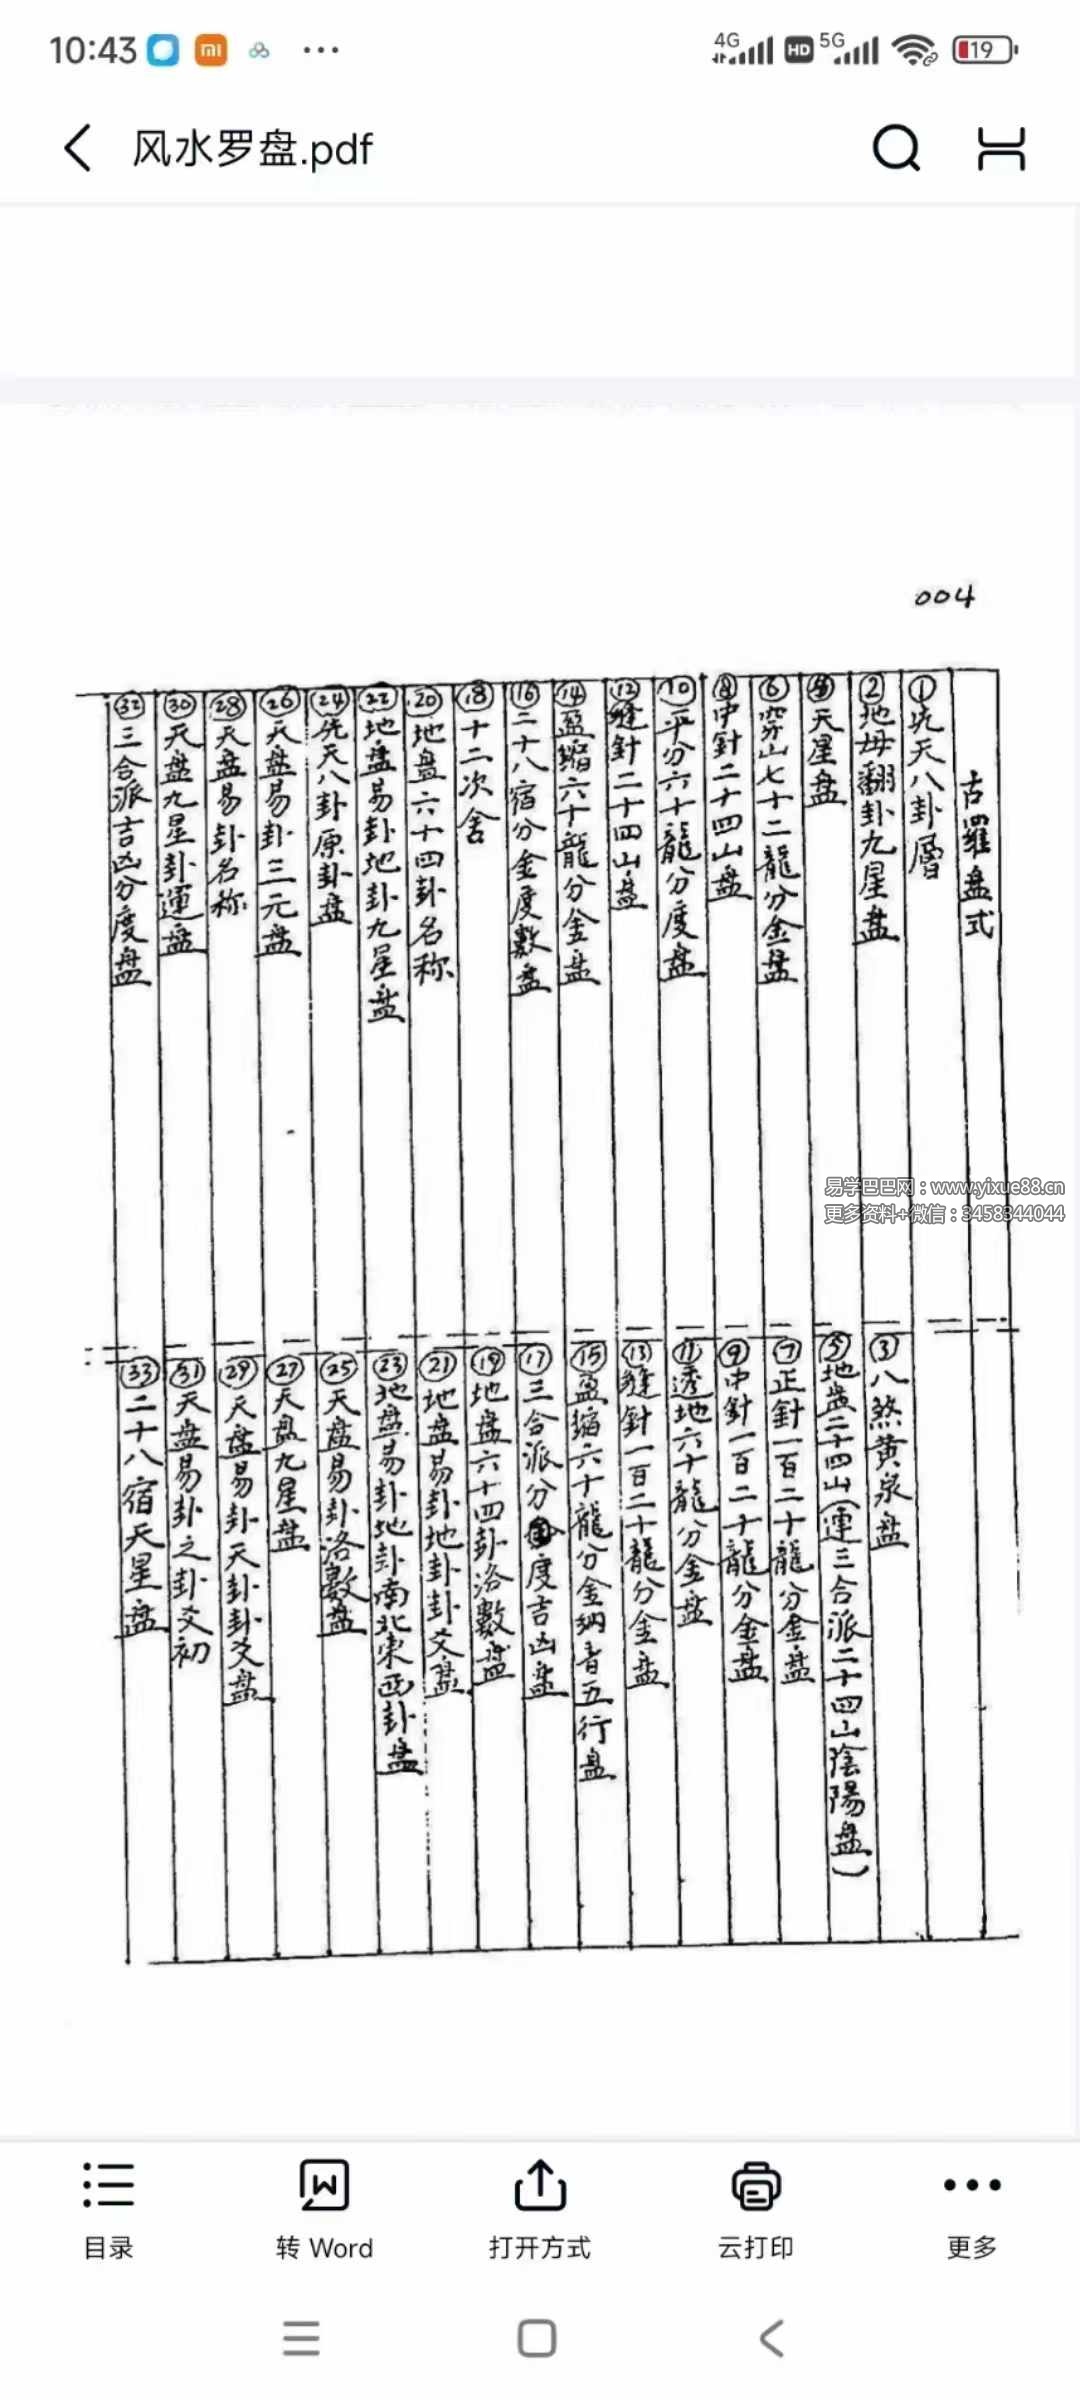 10:43
4G
HD
5G
19
风水罗盘.pdf
004
古羅盘式
①先天八卦層
②地母翻卦九星盘
③八煞黄泉盘
④天星盘
⑤地盘二十四山(運三合派二十四山陰陽盘)
⑥穿山七十二龍分金盘
⑦正針一百二十龍分金盘
⑧中針二十四山盘
⑨中針一百二十龍分金盘
⑩平分六十龍分度盘
⑪透地六十龍分金盘
⑫縫針二十四山盘
⑬縫針一百二十龍分金盘
⑭盈縮六十龍分金盘
⑮盈縮六十龍分金纳音五行盘
⑯二十八宿分金度數盘
⑰三合派分度吉凶盘
⑱十二次舍
⑲地盘六十四卦洛數盘
⑳地盘六十四卦名称
㉑地盘易卦地卦卦爻盘
㉒地盘易卦地卦九星盘
㉓地盘易卦地卦南北東西卦盘
㉔先天八卦原卦盘
㉕天盘易卦洛數盘
㉖天盘易卦三元盘
㉗天盘九星盘
㉘天盘易卦名称
㉙天盘易卦天卦卦爻盘
㉚天盘九星卦運盘
㉛天盘易卦之卦爻初
㉜三合派吉凶分度盘
㉝二十八宿天星盘
易学巴巴网：www.yixue88.cn
更多资料+微信：3458344044
目录
转 Word
打开方式
云打印
更多